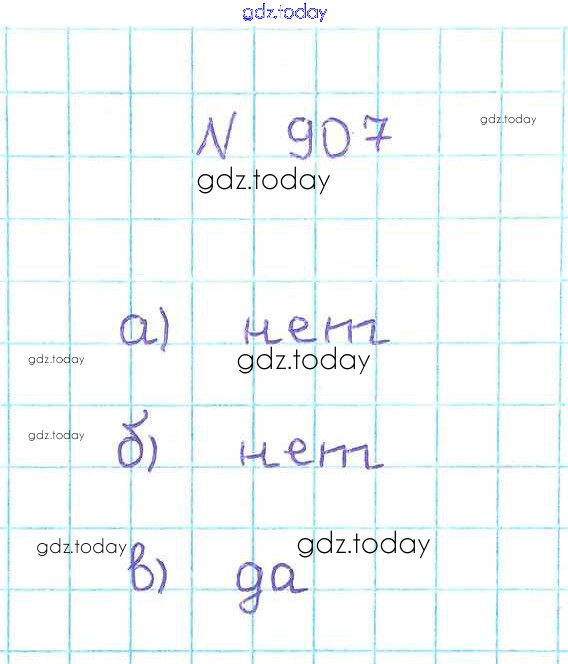 gdz.today
N 907
gdz.today
gdz.today
а) нет
gdz.today
gdz.today
б) нет
gdz.today
в) да
gdz.today
gdz.today